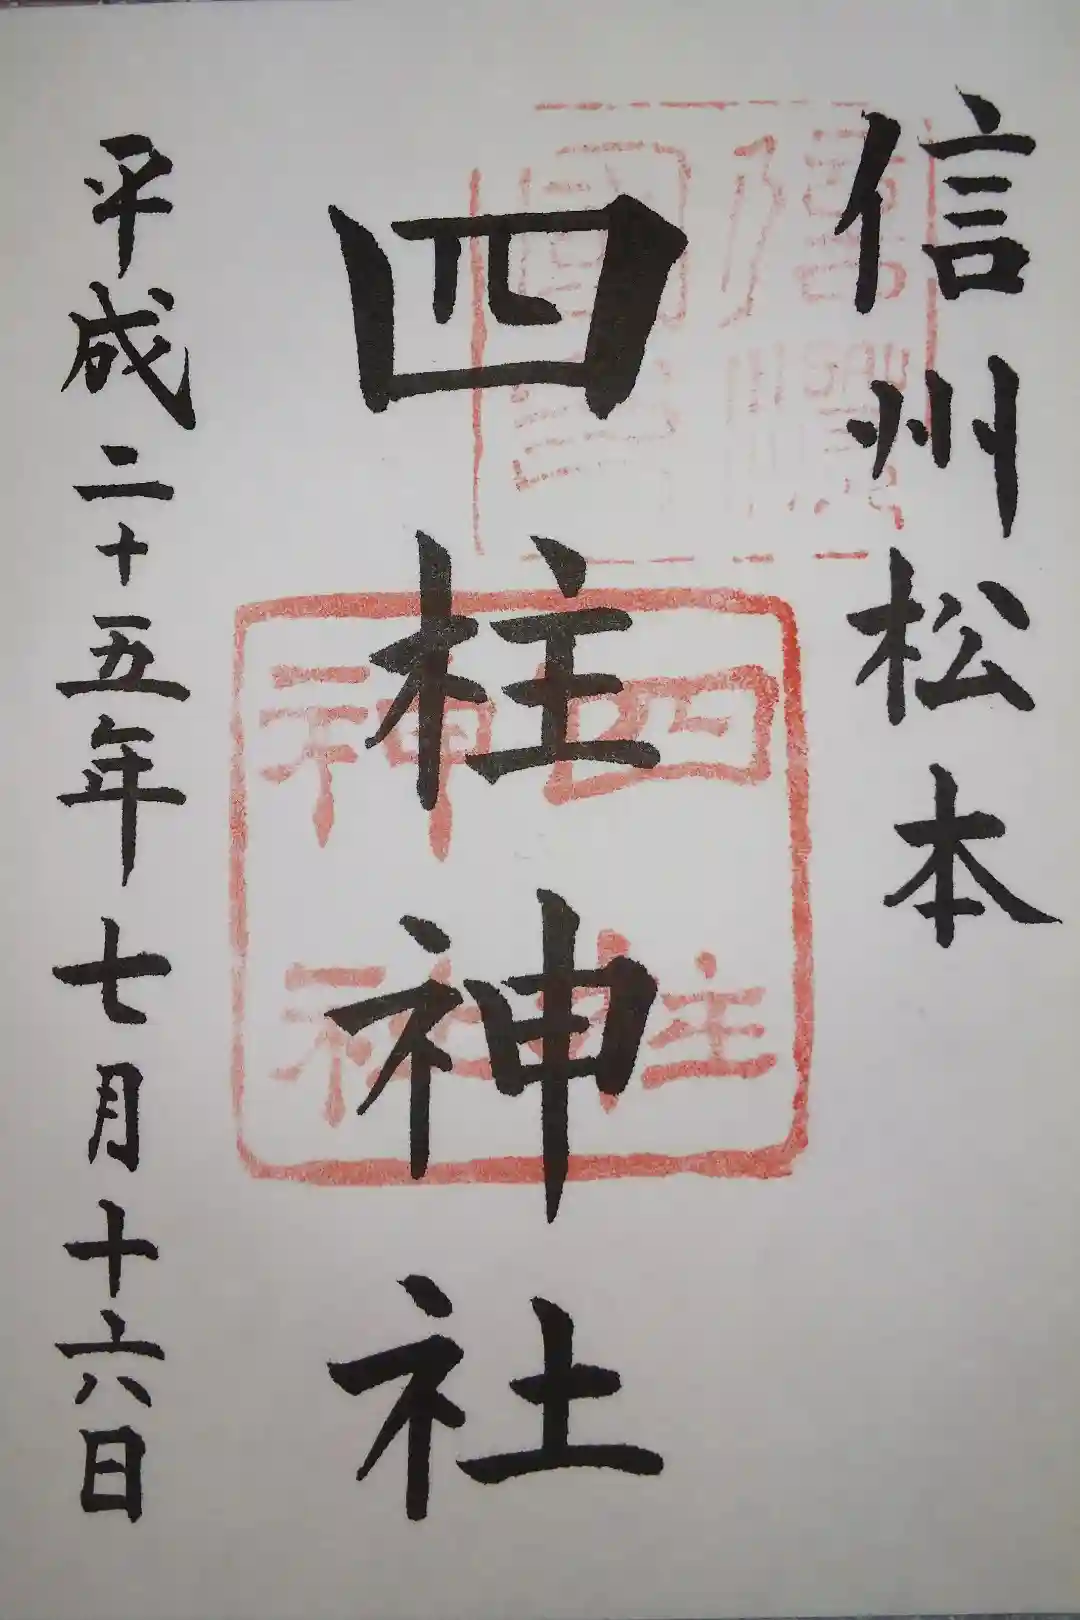 信州松本
四柱神社
平成二十五年七月十六日
四柱
神社